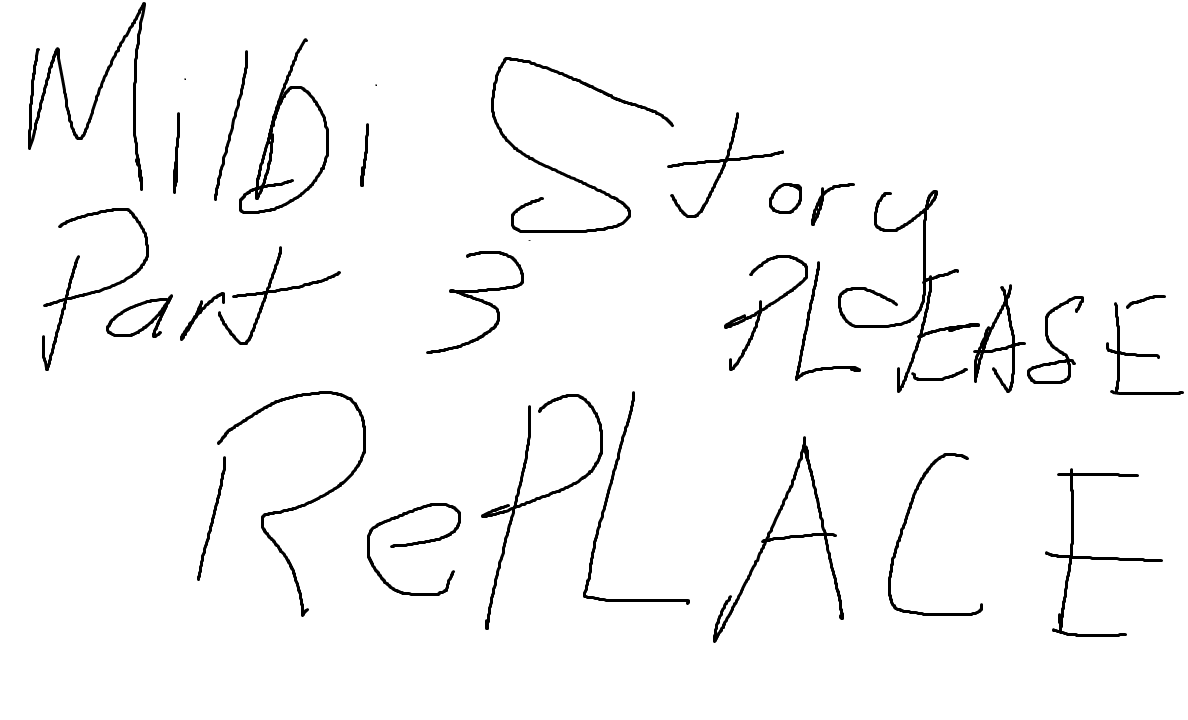 Milbi Story
Part 3 PLEASE
RePLACE